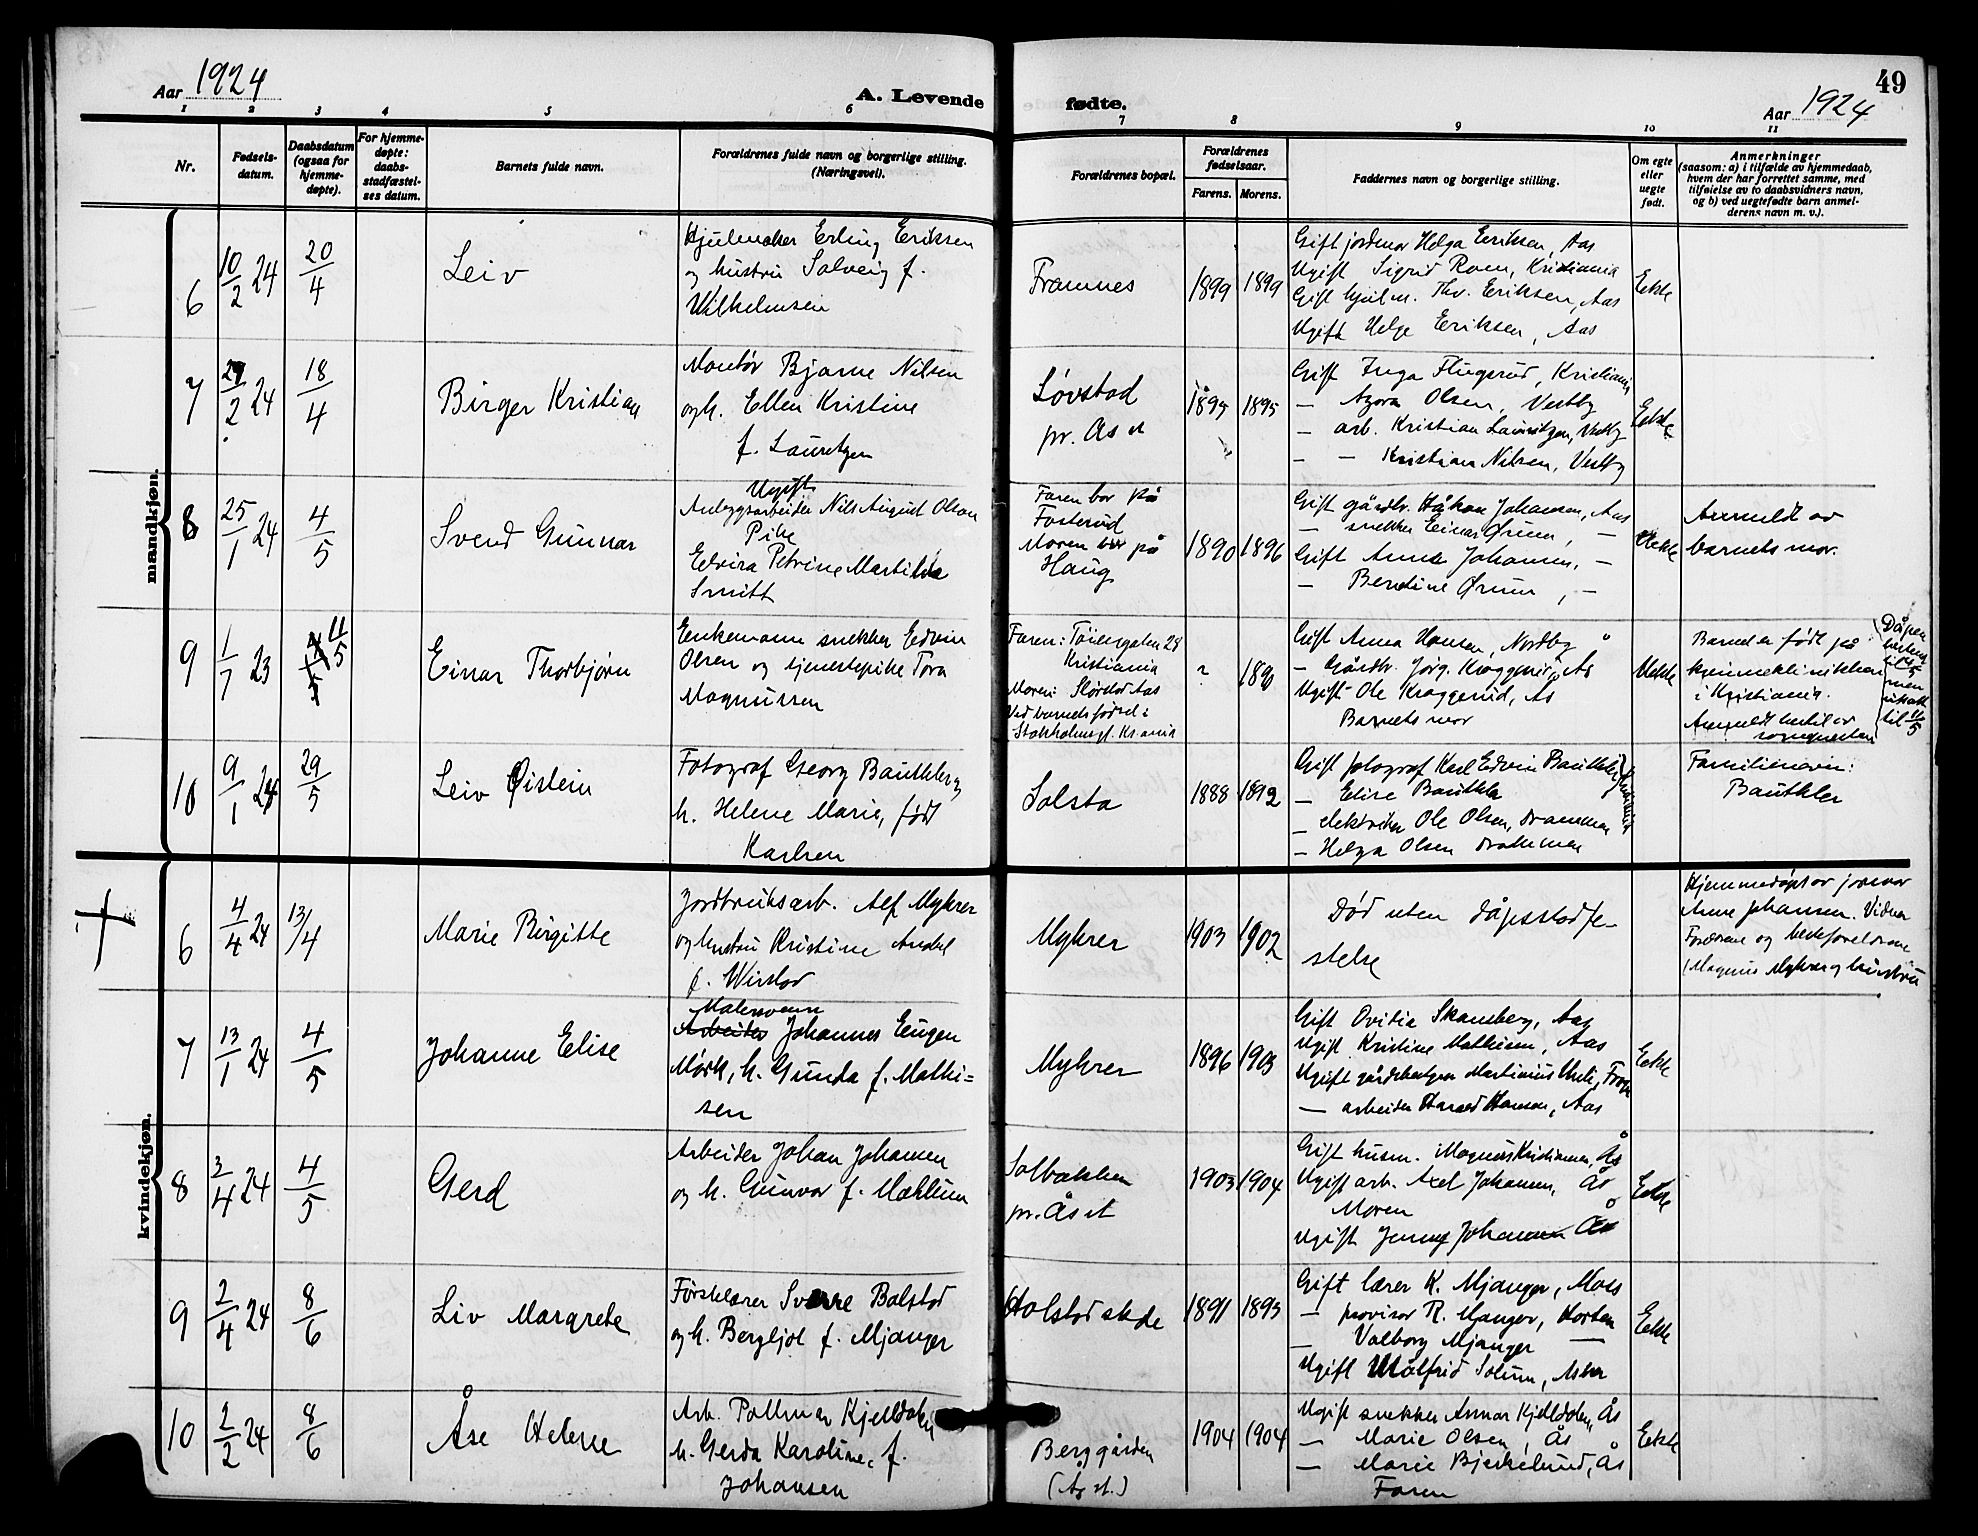 Aar 1924
A. Levende
fødte.
49
Aar 1924
1 2 3 4 5 6 7 8 9 10 11
Nr.
Fødsels-
datum.
Daabsdatum
(ogsaa for
hjemme-
døpte).
For hjemme-
døpte:
daabs-
stadfæstel-
ses datum.
Barnets fulde navn.
Forældrenes fulde navn og borgerlige stilling.
(Næringsvei).
Forældrenes bopæl.
Forældrenes
fødselsaar.
Farens. Morens.
Faddernes navn og borgerlige stilling.
Om egte
eller
uegte
født.
Anmerkninger
(saasom: a) i tilfælde av hjemmedaab,
hvem der har forrettet samme, med
tilføielse av to daabsvidners navn,
og b) ved uegtefødte barn anmel-
derens navn m. v.).
mandkjøn.
6
10/2 24
20/4
Leiv
Hjulmaker Erling Eriksen
og hustru Solveig f.
Wilhelmsen
Framnes
1899 1899
Gift jordmor Helga Eriksen, Aas
Ugift Sigrid Roen, Kristiania
Gift hjulm. Thv. Eriksen, Aas
Ugift Helge Eriksen, Aas
Ekte
7
2 24
18/4
Birger Kristian
Montør Bjarne Nilsen
og h. Ellen Kristine
f. Lauritzen
Løvstad
pr. Ås st
1895
Gift Inga Flugsrud, Kristiania
— Agora Olsen, Vestby
— arb. Kristian Lauritzen, Vestby
— — Kristian Nilsen, Vestby
Ekte
8
25/1 24
4/5
Svend Gunnar
Ugift
Anleggsarbeider Nils August Olsen
Pike
Elvira Petrine Martilda
Smitt
Faren bor på
Fosterud
Moren bor på
Haug
1890 1896
Gift gårdbr. Håkon Johansen, Aas
— snekker Einar Ørum, —
Gift Anna Johansen, —
— Berntine Ørum, —
Uekte
Anmeldt av
barnets mor.
9
1/7 23
11/5
Einar Thorbjørn
Enkemann snekker Edvin
Olsen og tjenestepike Tora
Magnussen
Faren: Tøiengaten 28
Kristiania
Moren: Slørstad Aas
Ved barnets fødsel i
Stokholmsg. Kr.ania
?
Gift Anna Hansen, Nordby
— Gårdbr. Jørg. Kraggerud, Ås
Ugift Ole Kraggerud, Ås
Barnets mor
Uekte
Barnet er født på
kvinneklinikken
i Kristiania.
Anmeldt hertil av
sognepresten
Dåpen
til
men
utsatt
til 11/5
10
9/1 24
29/5
Leiv Øistein
Fotograf Georg Bauthler og
h. Helene Marie, født
Karlsen
Solsta
1888 1892
Gift fotograf Karl Edvin Bauthler
— Elise Bauthler
— elektriker Ole Olsen, Drammen
— Helga Olsen Drammen
Familienavn:
Bauthler
kvindekjøn.
6
4/4 24
13/4
Marie Birgitte
Jordbruksarb. Alf Mykrer
og hustru Kristine Andel
f. Wirstad
Mykrer
1903 1902
Død uten dåpsstadfe-
stelse
Hjemmedøpt av jormor
Anna Johansen. Vidner
Foreldrene og besteforeldrene
Magnus Mykrer og hustru
7
13/1 24
4/5
Johanne Elise
Malersvenn
Arbeider Johannes Eugen
Mørk, h. Gunda f. Mathi-
sen
Mykrer
1896 1903
Gift Ovidia Skansberg, Aas
Ugift Kristine Mathisen, Aas
Ugift gårdsbestyrer Martinius
— arbeider Harald Hansen, Aas
Ekte
8
3/4 24
4/5
Gerd
Arbeider Johan Johansen
og h. Gunvor f. Mæhlum
Solbakken
pr. Ås st
1903 1904
Gift husm. Magnus Kristiansen, Ås
Ugift arb. Axel Johansen, Ås
Moren
Ugift Jenny Johansen Ås
Ekte
9
2/4 24
8/6
Liv Margrete
Førstelærer Sverre Balstad
og h. Bergljot f. Mjanger
Holstad skole
1891 1893
Gift lærer K. Mjanger, Moss
— provisor R. Mjanger, Horten
— Valborg Mjanger —
Ugift Målfrid Solum, Asker
Ekte
10
2/2 24
8/6
Åse Helene
Arb. Pallmar Kjelldalen
h. Gerda Karoline, f.
Johansen
Berggården
(Ås st.)
1904 1904
Ugift snekker Annar Kjelldalen, Ås
— Marie Olsen, Ås
— Marie Bjerkelund, Ås
Faren
Ekte